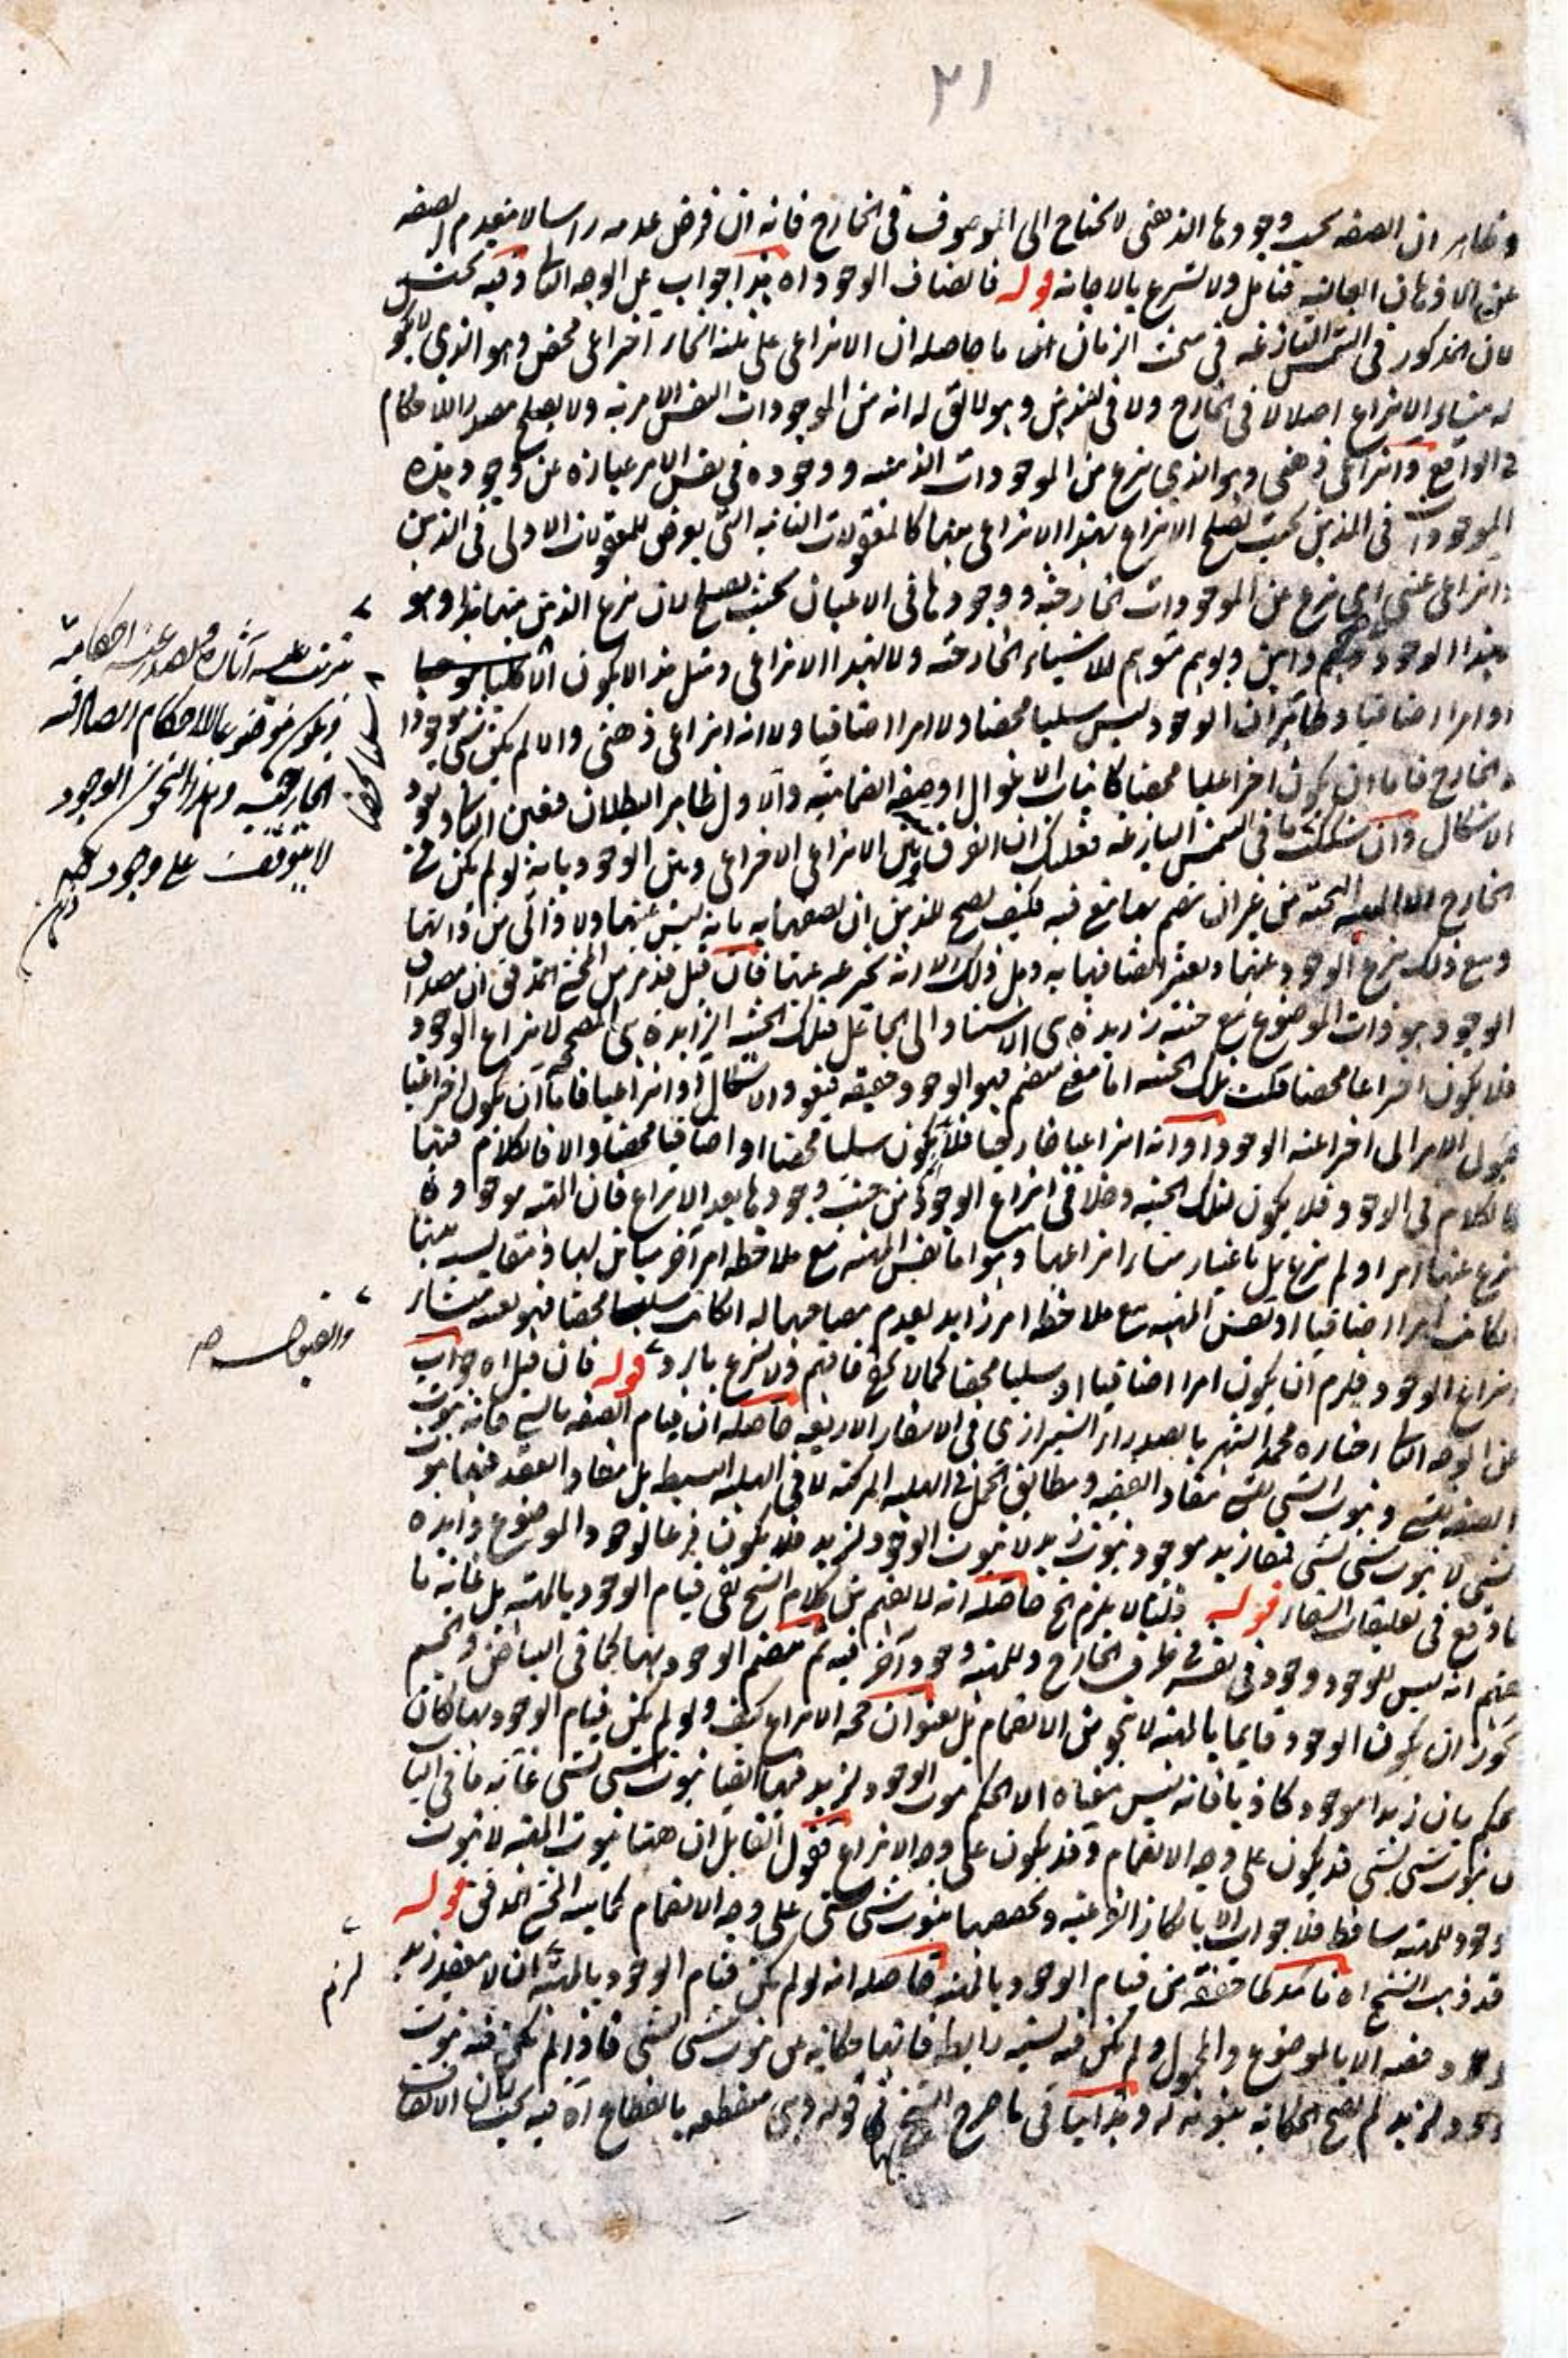 ٢١
وظاهر ان الصفه بحسب وجودها الذهنى لا تحتاج الى الموصوف فى الخارج فانه ان فرض عدمه راسا لا ينعدم الصفه
عن الاذهان العاليه فتامل ولا تسرع بالاجابه قوله فاتصاف الوجود اه هذا جواب عن الوجه الثانى وفيه بحث
لان المذكور فى الشمس البازغه فى مبحث الزمان ما حاصله ان الانتزاعى على ثلثه انحاء اختراعى محض وهو الذى لا يكون
له منشاء الانتزاع اصلا لا فى الخارج ولا فى الذهن وهو لا يق له انه من الموجودات النفس الامريه ولا يصلح مصدرا للاحكام
فى الواقع وانتزاعى ذهنى وهو الذى ينزع من الموجودات الذهنيه ووجوده فى نفس الامر عباره عن وجود هذه
الموجودات فى الذهن بحيث تصلح الانتزاع لهذا الانتزاعى منها كالمعقولات الثانيه التى يعرض للمعقولات الاولى فى الذهن
وانتزاعى عينى اى ينزع عن الموجودات الخارجيه ووجودها فى الاعيان بحيث يصلح لان ينزع الذهن منها وهو
بهذا الوجود ذاهن وتوهم متوهم للاشياء الخارجيه ولا لهذا الانتزاعى ومثل هذا لا يكون الا
او امرا اضافيا وظاهر ان الوجود ليس سلبيا محضا ولا امرا اضافيا ولا انه انتزاعى ذهنى والا لم يكن شى موجودا
فى الخارج فاما ان يكون اختراعيا محضا كانياب الاغوال او صفه انضماميه والاول ظاهر البطلان فتعين الثانى ويعود
الاشكال وان شككت ما فى الشمس البازغه فعليك ان الفرق بين الانتزاعى الاختراعى وبين الوجود بانه لو لم يكن فى
الخارج الا الماهيه البحته من غير ان ينضم بها شى فيه فكيف يصح للذهن ان يصفها به بانه ليس عنها ولا ذاتى من ذاتها
ومع ذلك ينزع الوجود عنها ويعتبر اتصافها به وهل ذلك الا انه يخترعه عنها فان قيل قد مر من المحشى المدقق ان مصداق
الوجود هو ذات الموضوع مع حيثيه زايده هى الاستناد الى الجاعل فتلك الحيثيه الزايده هى المصححه لانتزاع الوجود
فلا يكون اختراعيا محضا قلت تلك الحيثيه اما معنى منضم فهو الوجود حقيقه فيعود الاشكال او انتزاعيا فاما ان يكون اختراعيا
فيؤل الامر الى اختراعيه الوجود او انه انتزاعيا خارجيا فلا يكون سلبيا محضا او اضافيا محضا والا فالكلام فيها
كالكلام فى الوجود فلا يكون لتلك الحيثيه دخلا فى انتزاع الوجود من حيث وجودها بعد الانتزاع فان المهيه موجوده
نزع عنها امرا او لم ينزع بل باعتبار منشاء انتزاعها وهو اما نفس المهيه مع ملاحظه امر آخر مباين لها ومقايسه بينها
ان كانت امرا اضافيا او نفس المهيه مع ملاحظه امر زايد بعدم مصاحبتها له ان كانت سلبيا محضا فهو بعينه منشاء
انتزاع الوجود فيلزم ان يكون امرا اضافيا او سلبيا محضا كما لا يخفى فافهم ولا تسرع بالرد قوله فان قيل اه جواب
عن الوجه الثانى اختاره محمد الشهير بالصدر الشيرازى فى الاسفار الاربعه حاصله ان قيام الصفه بالشى فانه ثبوت
الصفه للشى وثبوت الشى للشى مفاد القضيه ومطابق الحمل فى الهليه المركبه لا فى الهليه البسيطه بل مفاد العقد فيها ثبوت
شى لا ثبوت شى لشى فمفاد زيد موجود ثبوت زيد لا ثبوت الوجود لزيد فلا يكون فرعا لوجود الموضوع وايده
ما وقع فى تعليقات الشفاء قوله قلنا لا يلزم الخ حاصله انه لا يفهم من كلام الشيخ نفى قيام الوجود بالمهيه بل غايه ما
يفهم انه ليس للوجود وجود فى نفسه فى ظرف الخارج وللمهيه وجود آخر فيه ثم ينضم الوجود بها كما فى البياض والجسم
يجوز ان يكون الوجود قايما بالمهيه لا بنحو من الانضمام بل بعنوان صحه الانتزاع كيف ولو لم يكن قيام الوجود بها لكان
الحكم بان زيدا موجود كاذبا فانه ليس معناه الا الحكم بثبوت الوجود لزيد فههنا ايضا ثبوت شى لشى غايه ما فى الباب
ان ثبوت شى لشى قد يكون على وجه الانضمام وقد يكون على وجه الانتزاع فقول القايل ان ههنا ثبوت المهيه لا ثبوت
وجود للمهيه ساقط فلا جواب الا بانكار الفرعيه وتخصيصها بثبوت شى لشى على وجه الانضمام كما بينه المحشى المدقق قوله
قد ذهب الشيخ اه تاكيد لما حققه من قيام الوجود بالمهيه حاصله انه لو لم يكن قيام الوجود بالمهيه
الا بالموضوع والمحمول ولم يكن فيه نسبه رابطه فانها حكايه عن ثبوت شى لشى فاذا لم يكن فيه ثبوت
الوجود لزيد لم يصح الحكايه بثبوته له وهذا ينافى ما صرح الشيخ فى قوله وهى منقطعه بانقطاع اه فيه بحث لان الاتصاف
يترتب عليه آثاره ويصدر عنه احكامه
ويكون موضوعا للاحكام الصادقه
الخارجيه وهذا النحو من الوجود
لا يتوقف على وجود
ذهن
سلبيا محضا
لزم